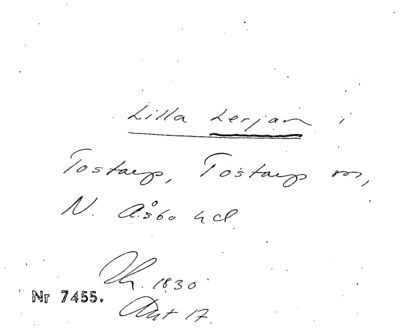 Lilla Lerjan i
Tostarp, Tostarp sn,
N. Åsbo hd.
1830
Nr 7455. Akt 17.